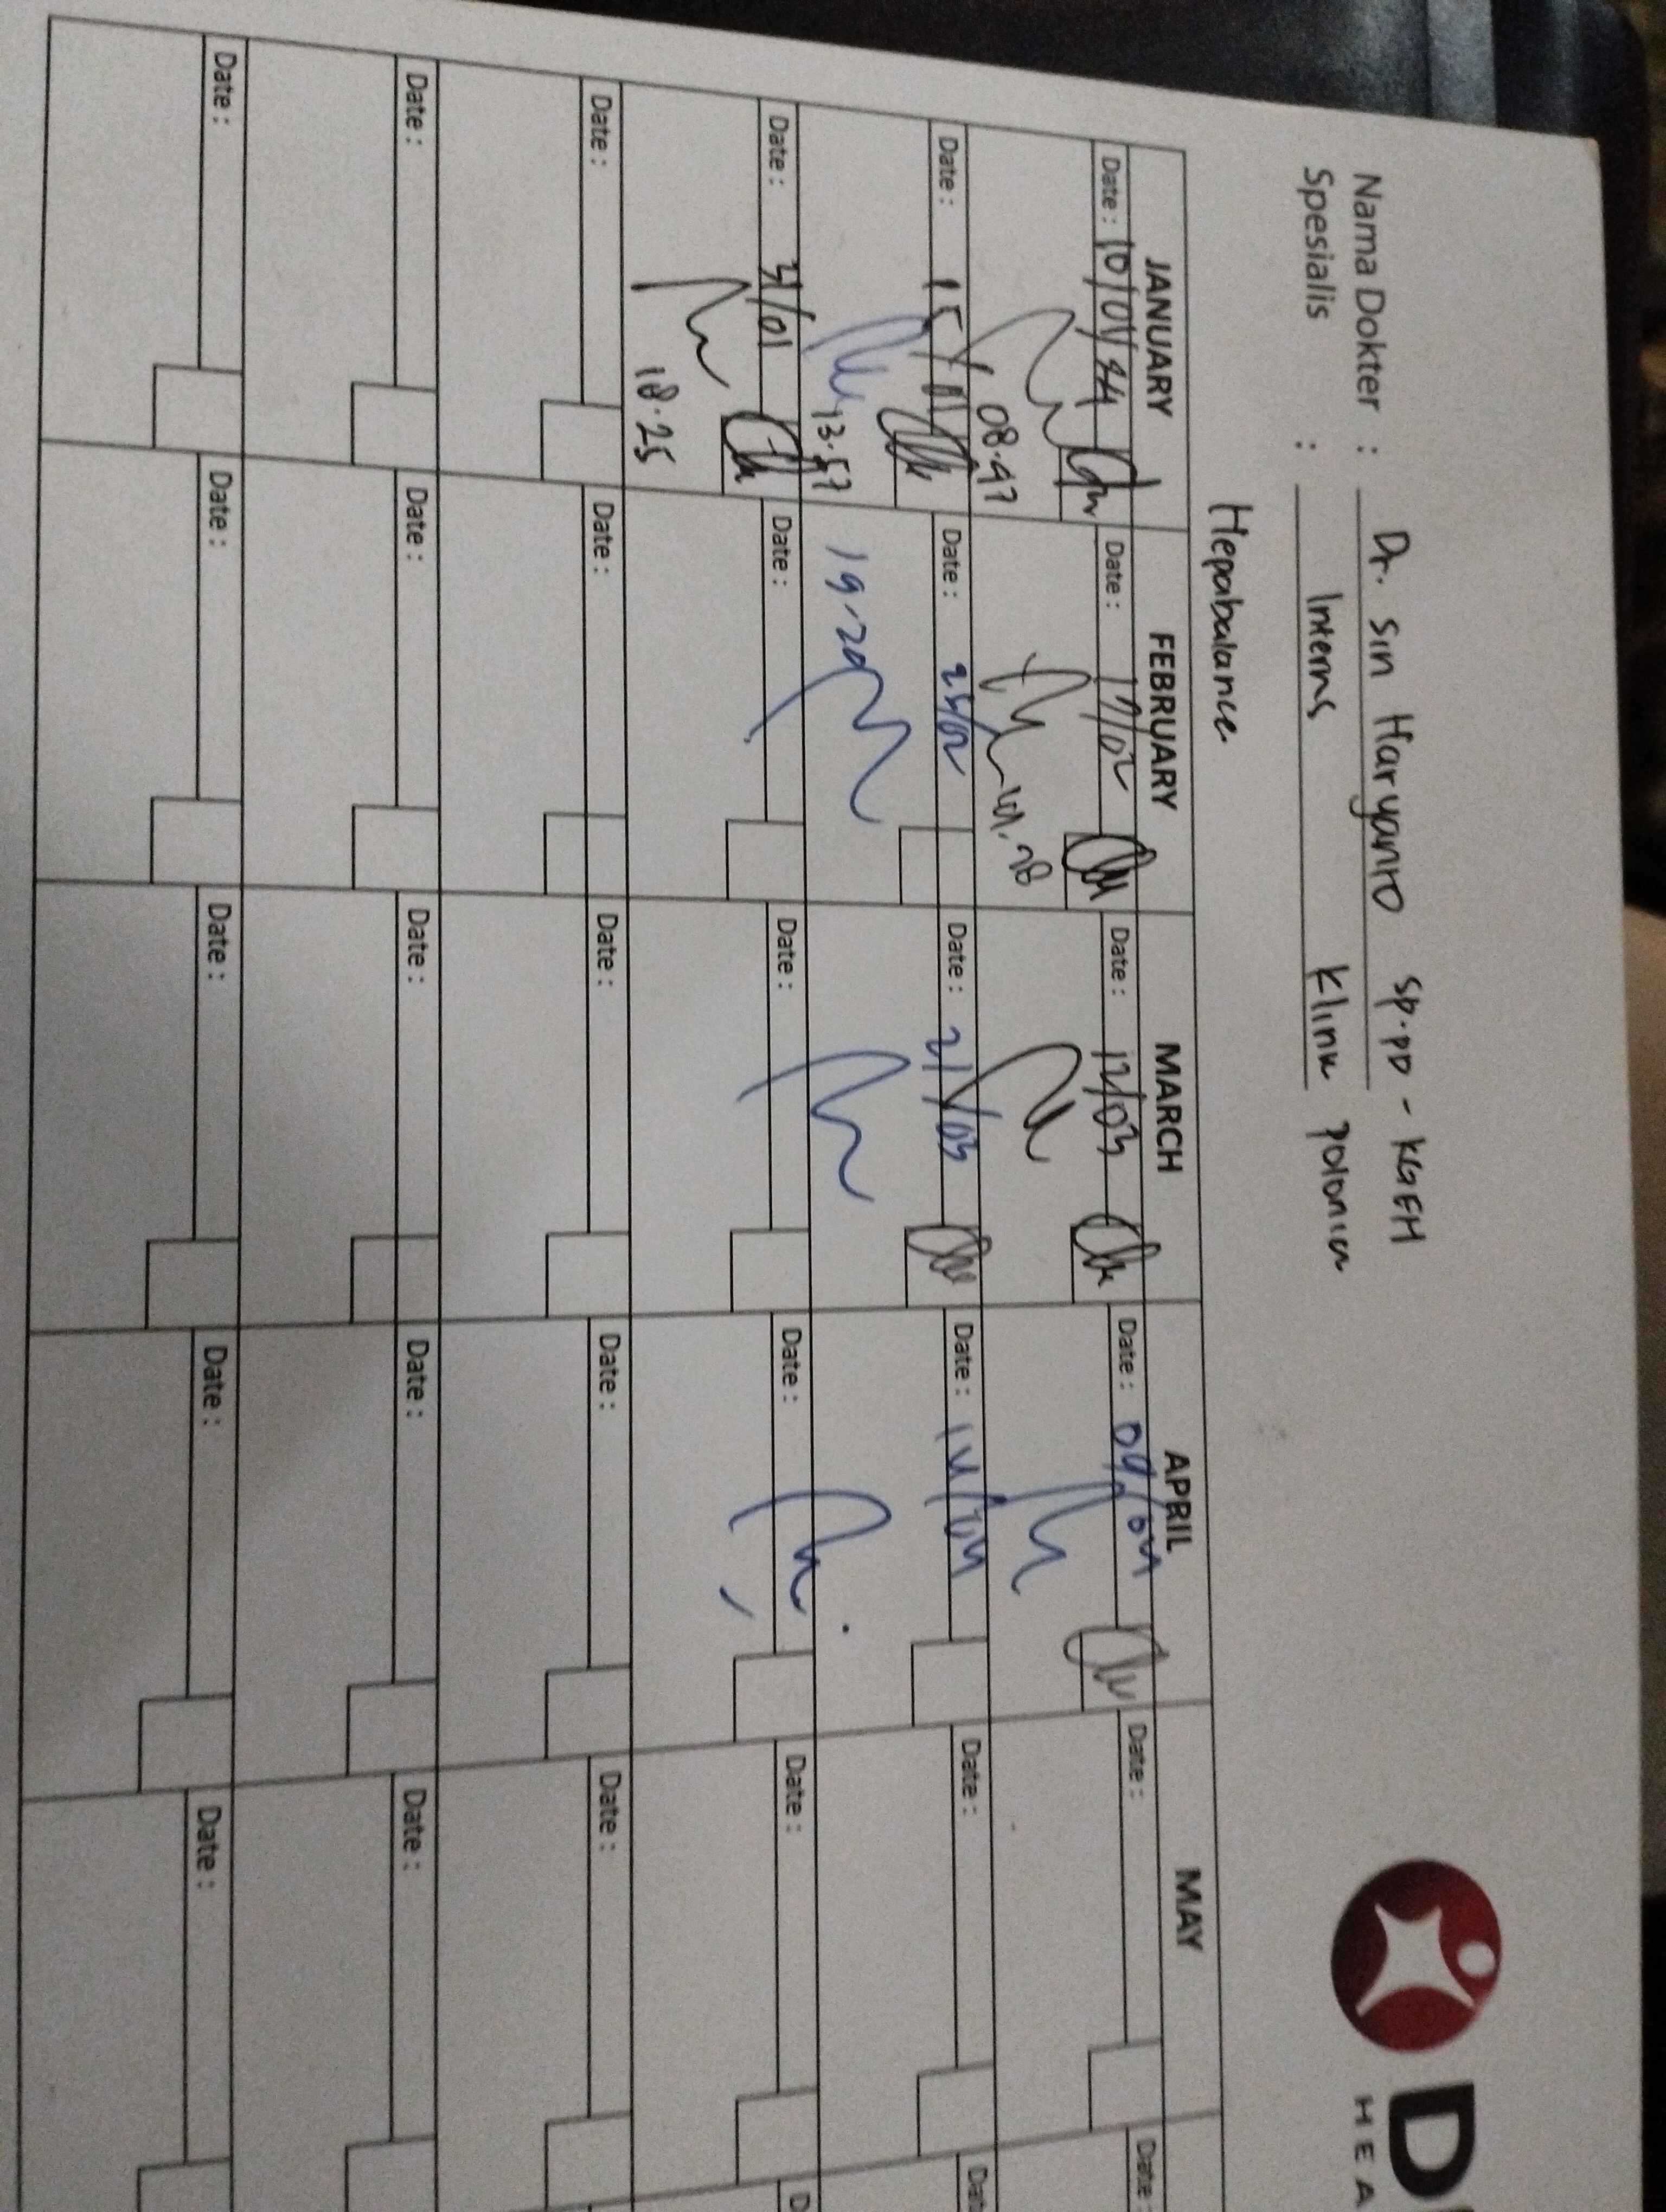 Nama Dokter : Dr. Sin Haryanto Sp.PD - KGEH
Spesialis : Interns Klinik Polonia
D
HEA
Hepabalance
JANUARY FEBRUARY MARCH APRIL MAY
Date : 10/01/24 Date : 17/02 Date : 12/03 Date : 04/04 Date : Date :
08.47
Date : 15/01 Date : 24/02 Date : 21/03 Date : 14/04 Date : Dat
13.57 19.20
Date : 31/01 Date : Date : Date : Date : D
18.25
Date : Date : Date : Date : Date :
Date : Date : Date : Date : Date :
Date : Date : Date : Date : Date :